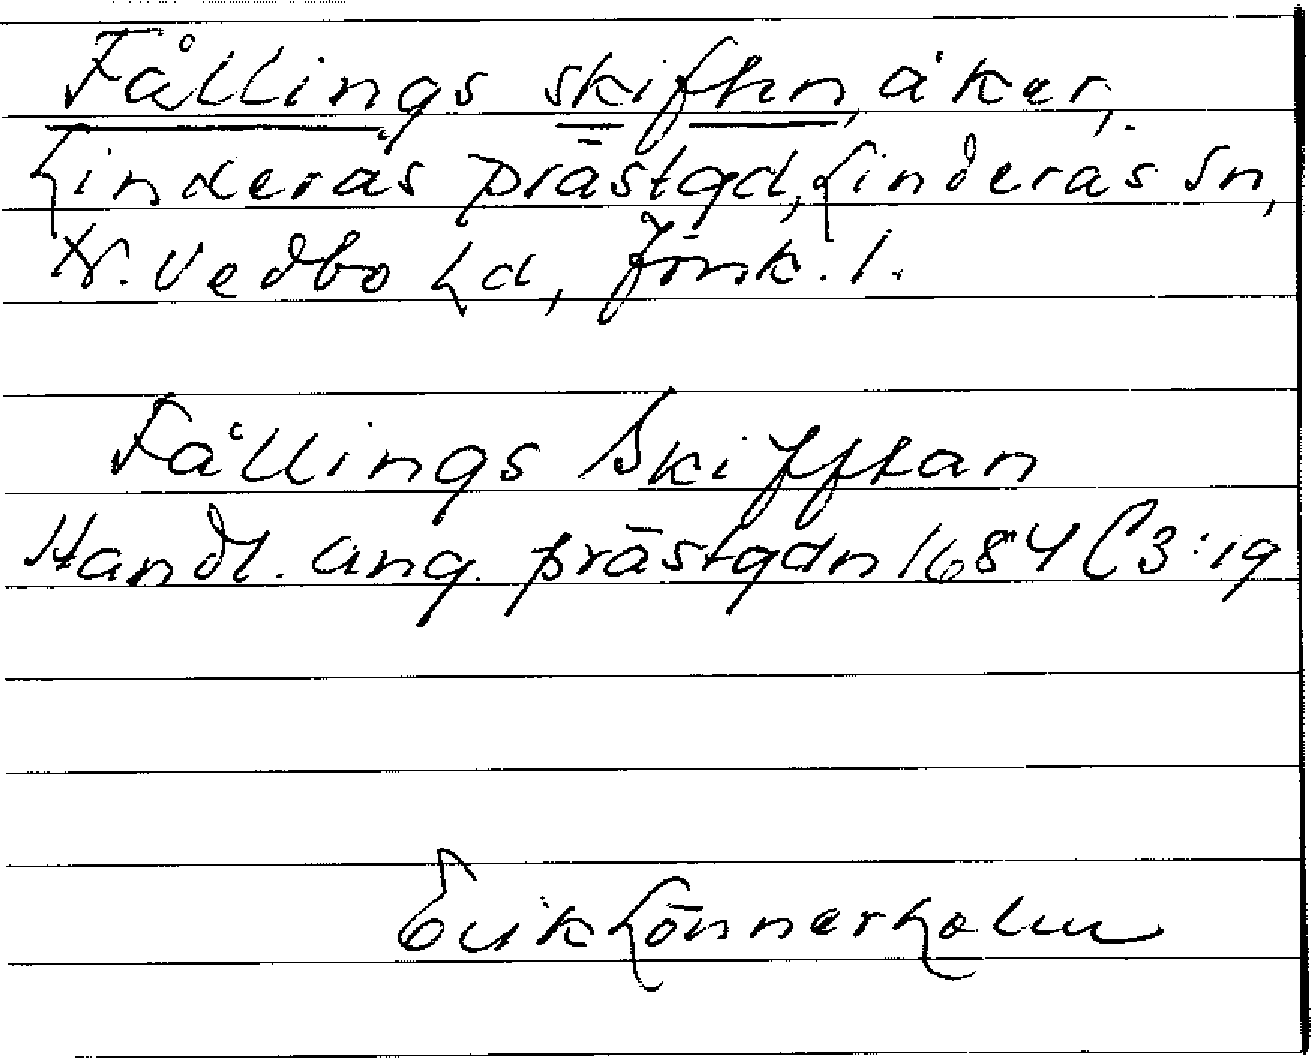 Fållings skifthn, åker,
Linderås prästgd, Linderås Sn,
N. Vedbo hd, Jönk. l.
Fållings Skifftan
Handl. ang. prästgdn 1684 C3:19
Erik Lönnerholm